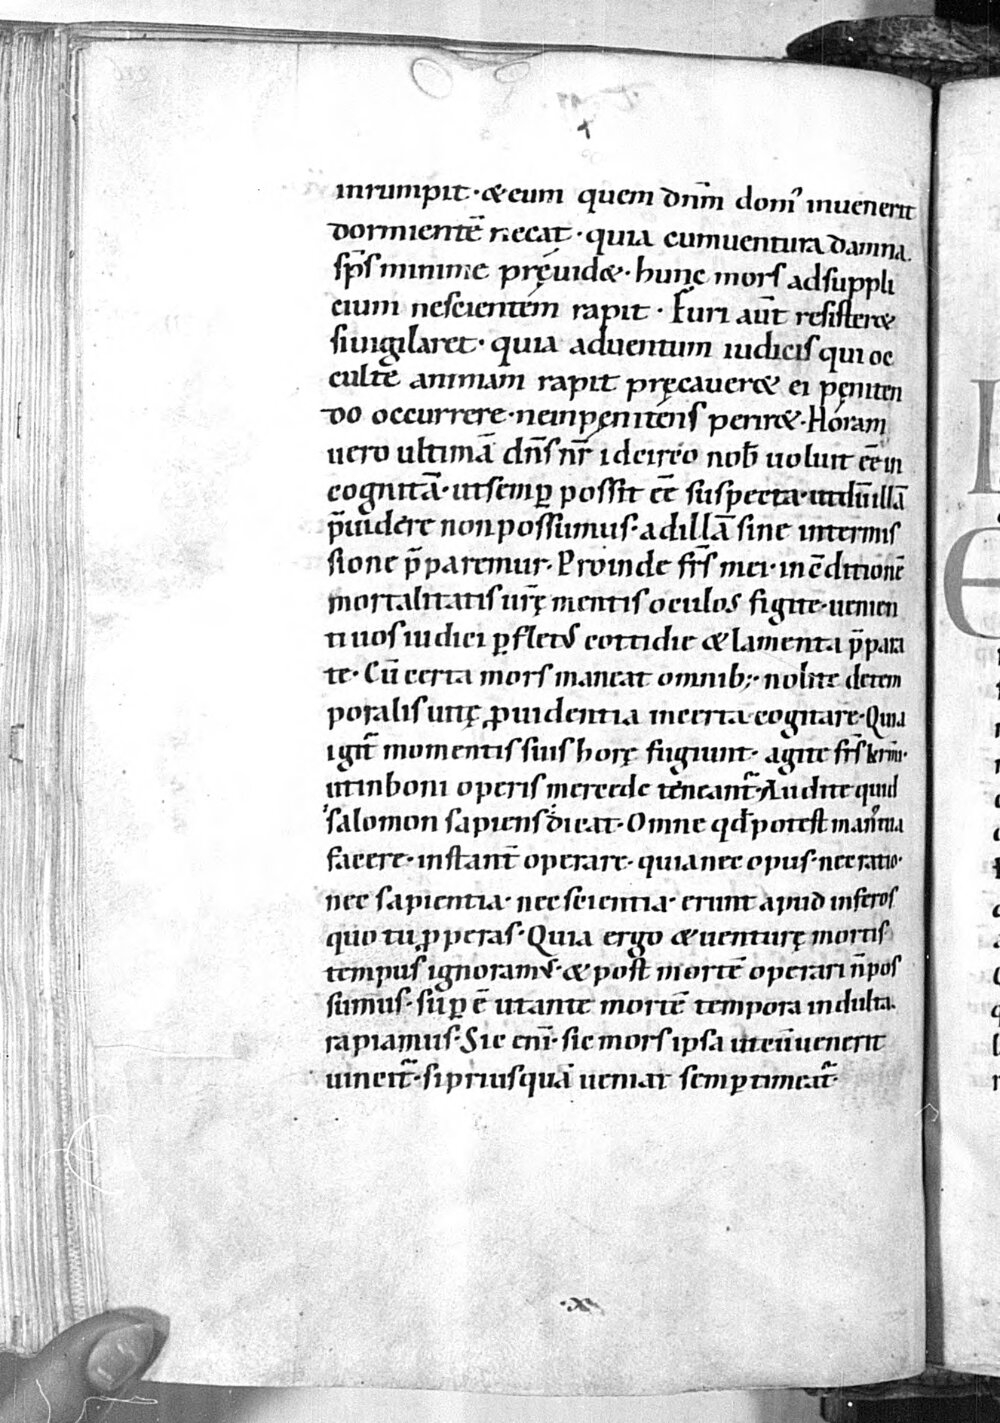 inrumpit · & eum quem dn̄m dom᷒ inuenerit
dormientē necat · quia cum uentura damna
sp̄s minime pręuid& · hunc mors ad suppli
cium nescientem rapit · Furi aūt resister&
si uigilaret · quia aduentum iudicis qui oc
culte animam rapit pręcauer& ei pęniten
do occurrere · ne inpęnitens perir& · Horam
uero ultimā dn̄s nr̄ idcirco nob̄ uoluit ēē in
cognitā · ut semꝑ possit ēē suspecta · ut dū illā
p̄uidere non possumus · ad illā sine intermis
sione p̄paremur · Proinde frs̄ mei · in c̄ditionē
mortalitatis ur̄ę mentis oculos figite · uenien
ti uos iudici ꝑ flet᷒ cottidie & lamenta p̄para
te · Cū certa mors maneat omnib; · nolite de tem
poralis uitę ꝓuidentia incerta cogitare · Quia
igit᷑ momentis suis horę fugiunt · agite frs̄ krm̄i ·
ut in boni operis mercede teneant᷑ · Audite quid
salomon sapiens dicat · Omne qd̄ potest man᷒ tua
facere · instant̄ operare · quia nec opus · nec ratio ·
nec sapientia · nec scientia · erunt apud inferos
quo tu ꝓperas · Quia ergo & uenturę mortis
tempus ignoram᷒ · & post mortē operari n̄ pos
sumus · suꝑ ē ut ante mortē tempora indulta
rapiamus · Sic eni᷒ · sic mors ipsa ut cū uenerit
uincit᷑ · si priusquā ueniat semꝑ timeat᷑ ·
·x·